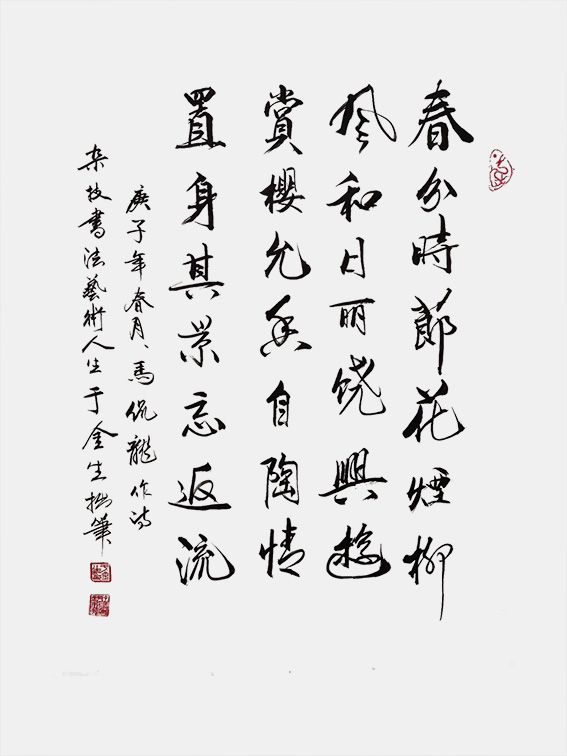 春分時節花煙柳
風和日丽饶興
賞櫻允自陶情
置身其景忘返流
庚子年春月、馬侃龍作诗
杂技書法藝術人生于金生拙筆